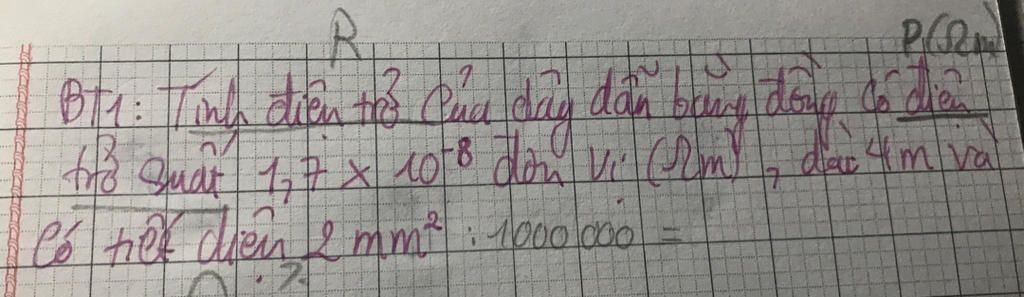 R
ρ(Ωm)
BT1: Tính điện trở của dây dẫn bằng đồng có điện
trở suất 1,7 x 10⁻⁸ đơn vị (Ωm), dài 4m và
có tiết diện 2 mm² : 1000 000 =